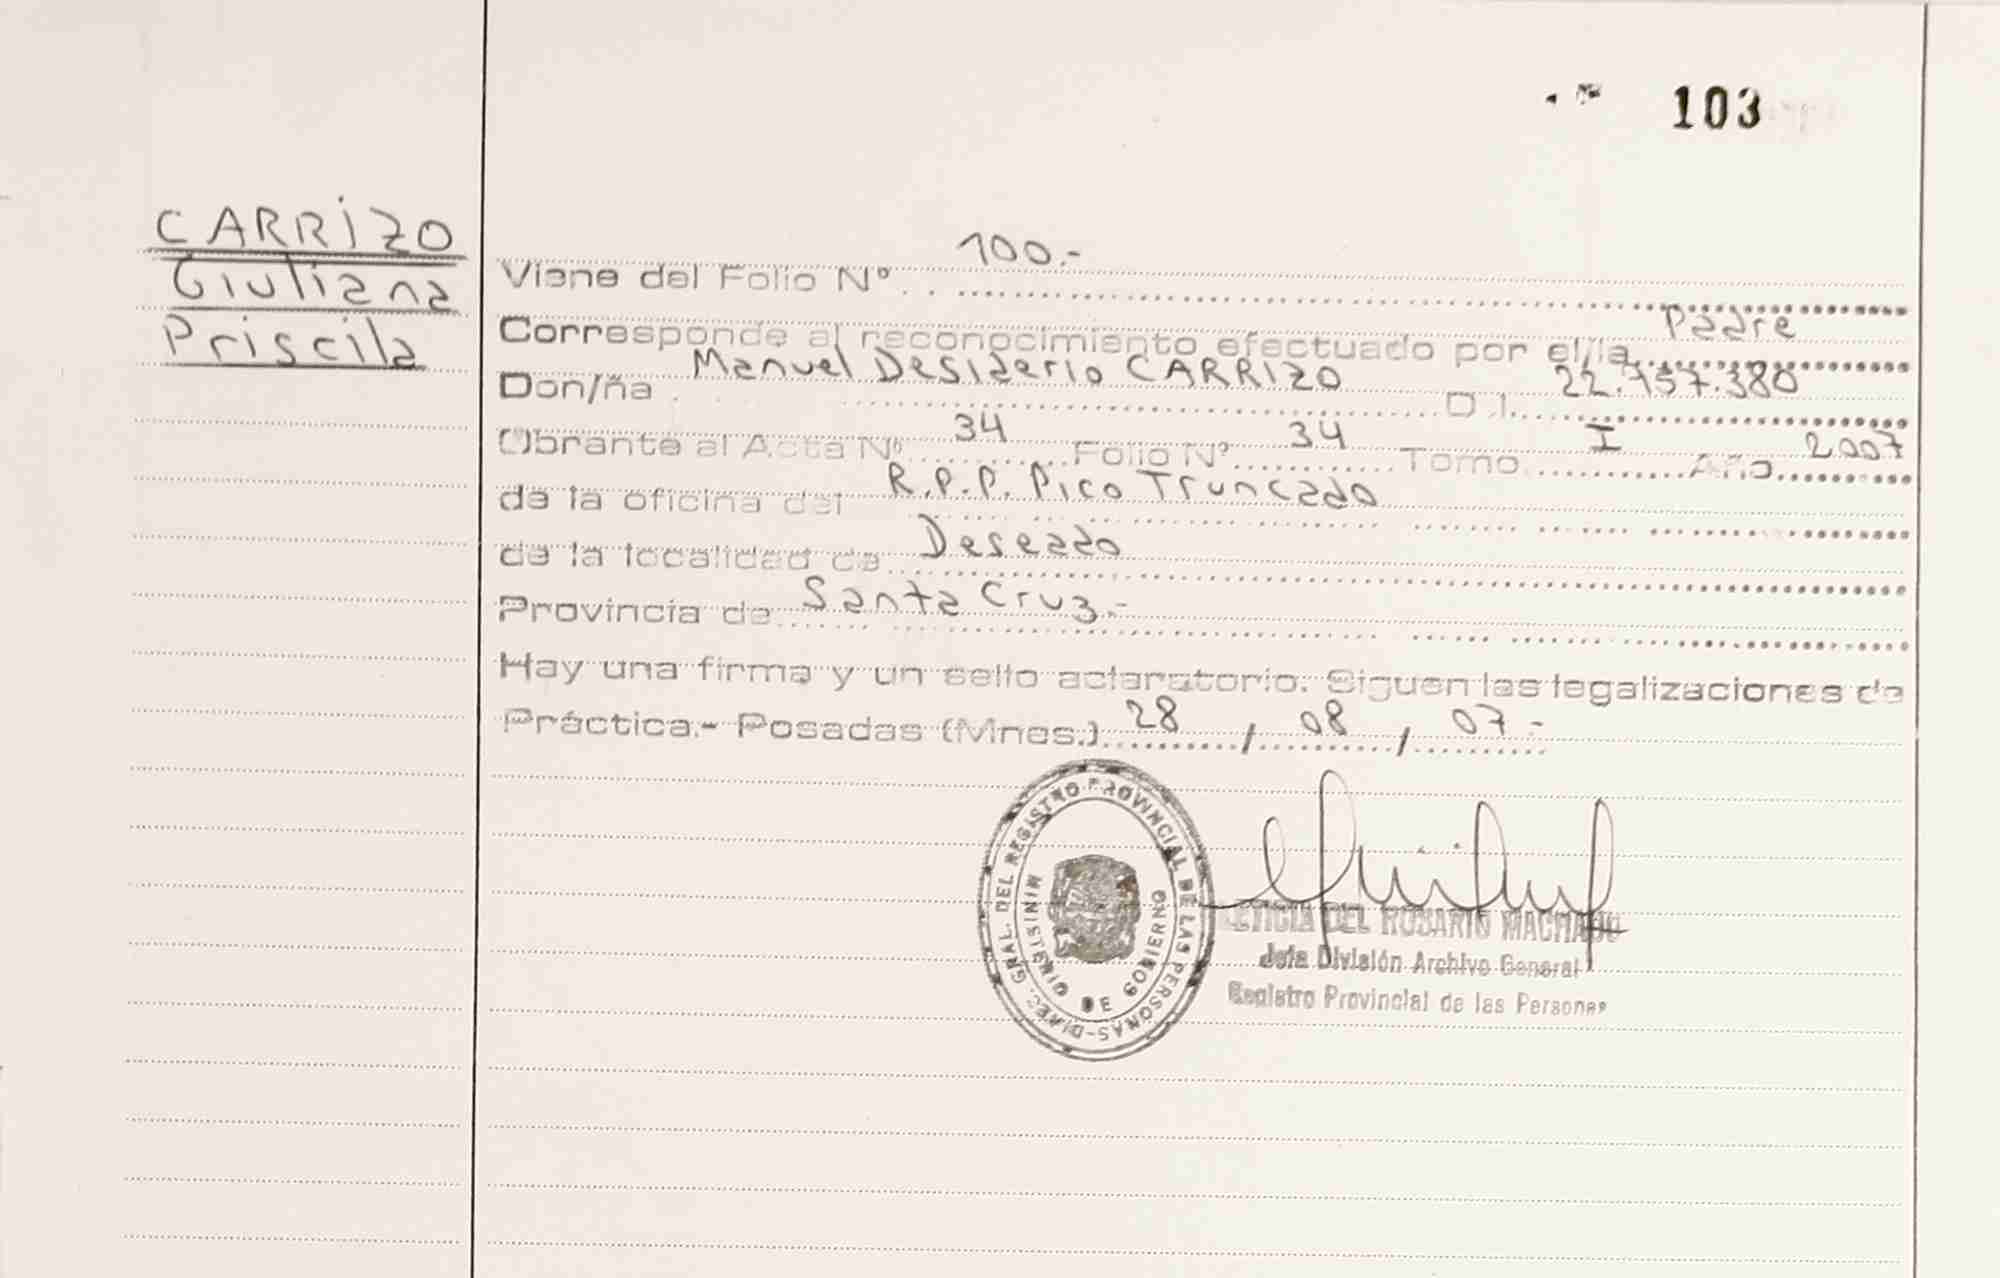 103
CARRIZO
Giuliana
Priscila
Viene del Folio Nº 100.-
Corresponde al reconocimiento efectuado por el/la Padre
Don/ña Manuel Desiderio CARRIZO D.I. 22.157.380
Obrante al Acta Nº 34 Folio Nº 34 Tomo I Año 2007
de la oficina del R.P.P. Pico Truncado
de la localidad de Deseado
Provincia de Santa Cruz.-
Hay una firma y un sello aclaratorio. Siguen las legalizaciones de
Práctica.- Posadas (Mnes.) 28 / 08 / 07.-
DIREC. GRAL. DEL REGISTRO PROVINCIAL DE LAS PERSONAS-
MINISTERIO DE GOBIERNO
LETICIA DEL ROSARIO MACHADO
Jefa División Archivo General
Registro Provincial de las Personas